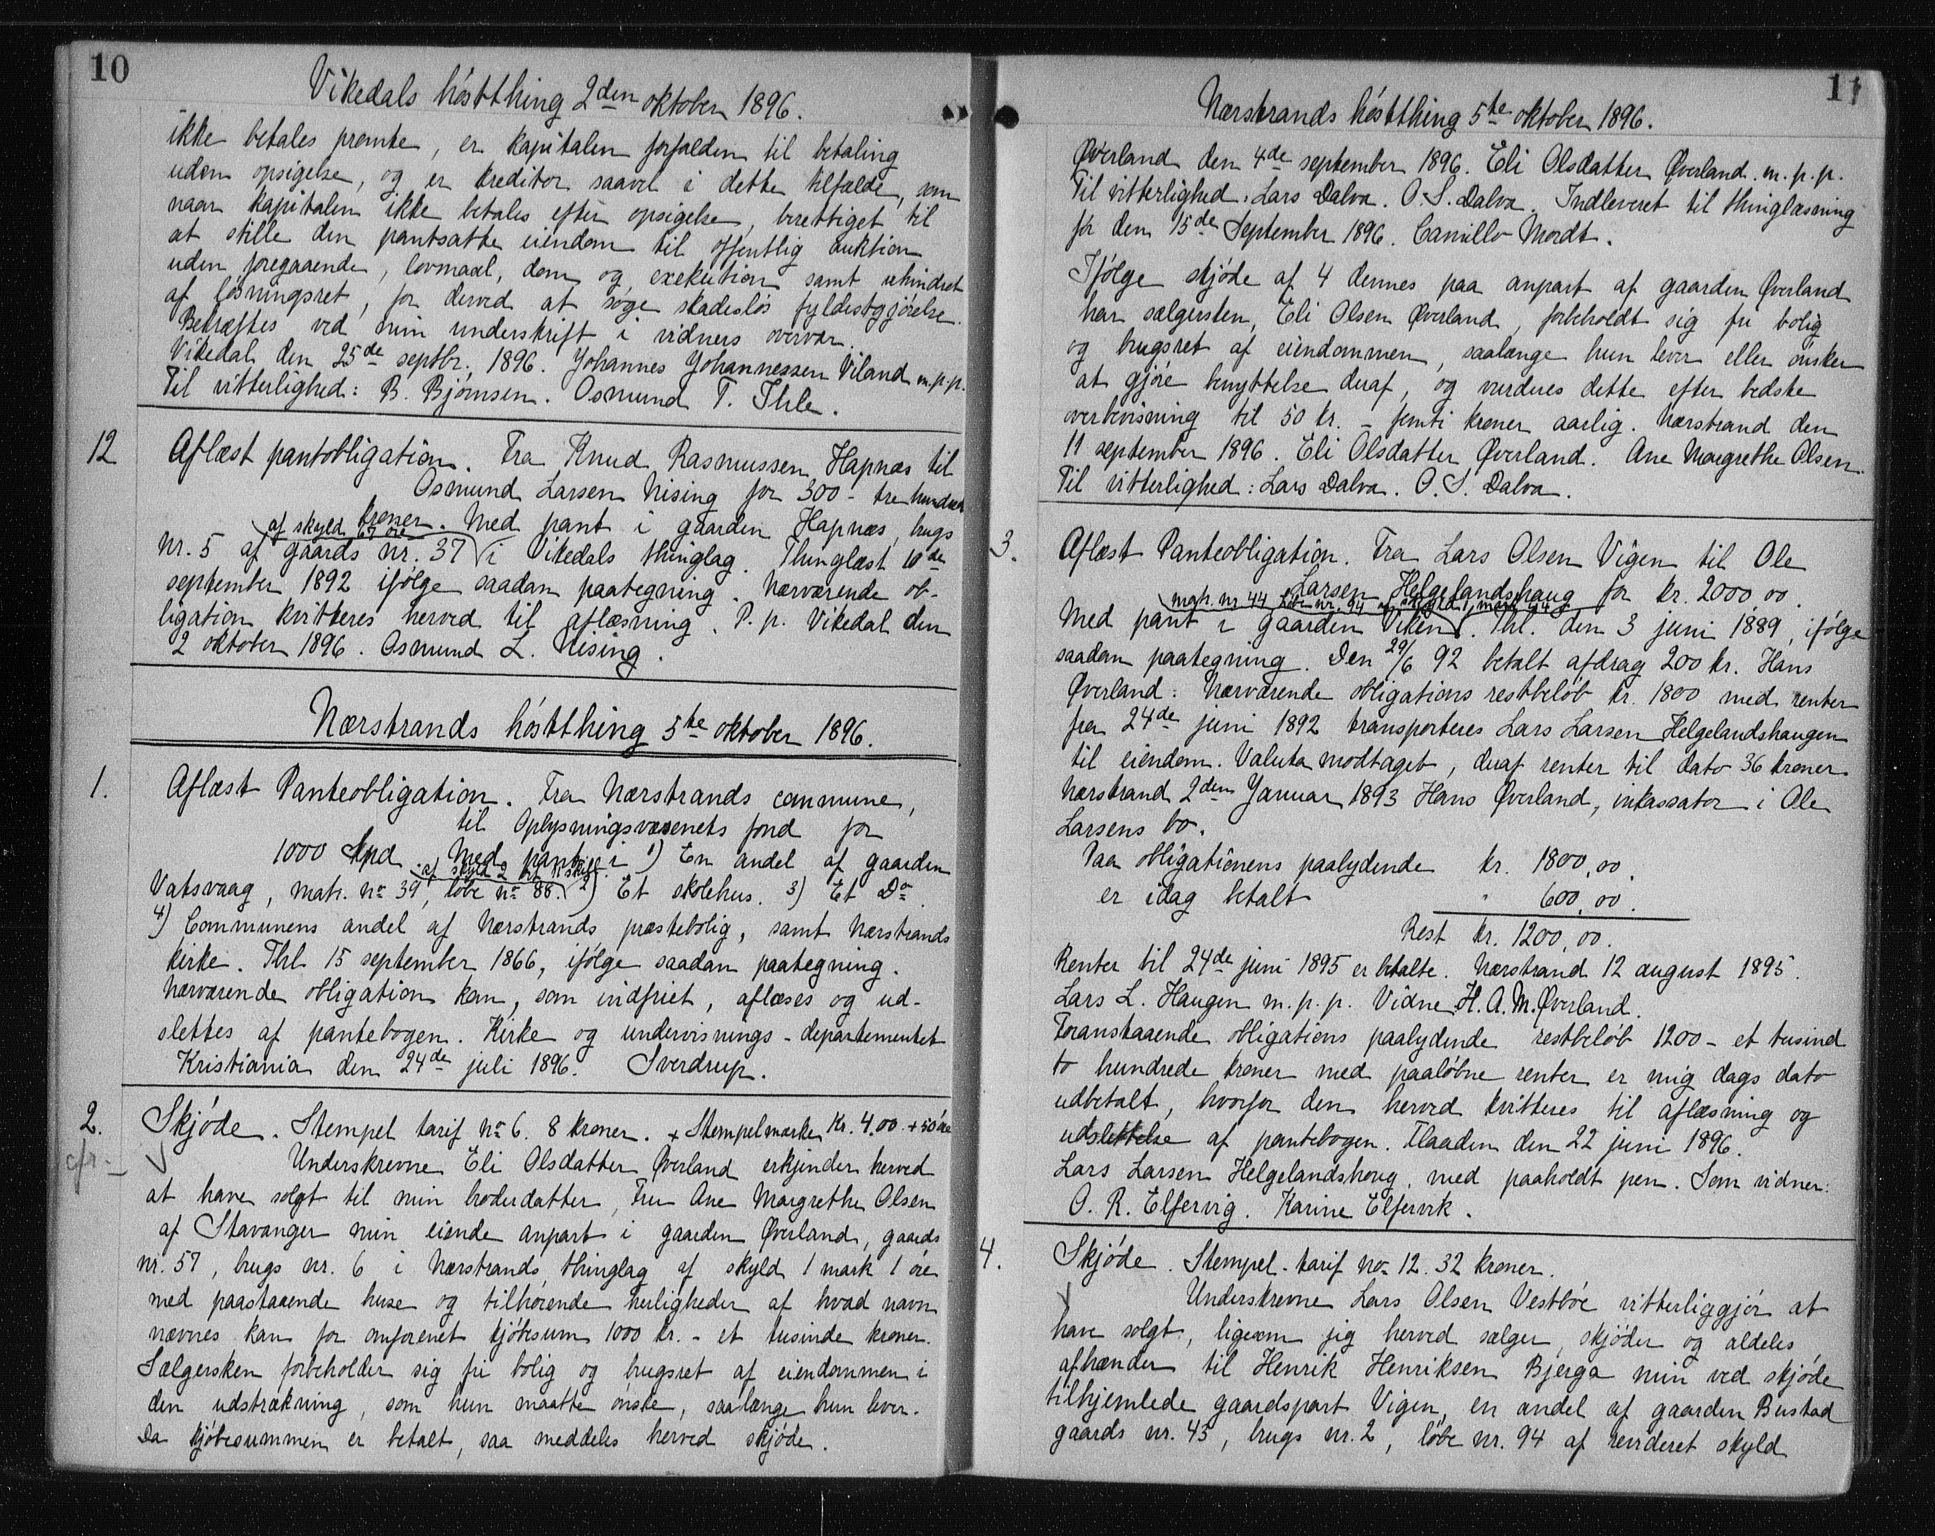 10
Vikedals høstthing 2den oktober 1896.
ikke betales promte, er kapitalen forfalden til betaling
uden opsigelse, og er kreditor saavel i dette tilfælde, som
naar kapitalen ikke betales efter opsigelse, berettiget til
at stille den pantsatte eiendom til offentlig auktion
uden foregaaende, lovmaal, dom og exekution samt uhindret
af løsningsret, for derved at søge skadesløs fyldestgjørelse.
Bekræftes ved min underskrift i vidners overvær.
Vikedal den 25de septbr. 1896. Johannes Johannessen Viland m.p.p.
Til vitterlighed: B. Bjørnsen. Osmund T. Ihle.
12 Aflæst pantobligation. Fra Knud Rasmussen Hapnæs til
Osmund Larsen Nising for 300 - tre hundrede
kroner. Med pant i gaarden Hapnæs, brugs
af skyld 67 øre
nr. 5 af gaards nr. 37 i Vikedals thinglag. Thinglæst 10de
september 1892 ifølge saadan paategning. Nærværende ob-
ligation kvitteres herved til aflæsning. P. p. Vikedal den
2 oktober 1896. Osmund L. Nising.
Nærstrands høstthing 5te oktober 1896.
1. Aflæst Panteobligation. Fra Nærstrands commune,
til Oplysningsvæsenets fond for
1000 Spd. Med pant i 1) En andel af gaarden
af skyld 2
Vatsvaag, matr. no 39, løbe no 86. 2) Et skolehus. 3) Et Do
4) Communens andel af Nærstrands præstebolig, samt Nærstrands
kirke. Thl. 15 september 1866, ifølge saadan paategning.
Nærværende obligation kan, som indfriet, aflæses og ud-
slettes af pantebogen. Kirke og undervisnings-departementet
Kristiania den 24de juli 1896. Sverdrup.
2. Skjøde. Stempel tarif no 6. 8 kroner. + Stempelmærke Kr. 4.00 + 50 øre
cfr. Underskrevne Eli Olsdatter Øverland erkjender herved
at have solgt til min broderdatter, Fru Ane Margrethe Olsen
af Stavanger min eiende anpart i gaarden Øverland, gaards
nr. 57, brugs nr. 6 i Nærstrands thinglag af skyld 1 mark 1 øre
med paastaaende huse og tilhørende herligheder af hvad navn
nævnes kan for omforenet kjøbesum 1000 kr. - et tusinde kroner.
Sælgersken forbeholder sig fri bolig og brugsret af eiendommen i
den udstrækning, som hun maatte ønske, saalænge hun lever.
Da kjøbesummen er betalt, saa meddeles herved skjøde.
11
Nærstrands høstthing 5te oktober 1896.
Øverland den 4de september 1896. Eli Olsdatter Øverland. m.p.p.
Til vitterlighed: Lars Dalva. O. S. Dalva. Indleveret til thinglæsning
for den 15de September 1896. Camillo Mordt.
Ifølge skjøde af 4 dennes paa anpart af gaarden Øverland
har sælgersken, Eli Olsen Øverland, forbeholdt sig fri bolig
og brugsret af eiendommen, saalænge hun lever eller ønsker
at gjøre benyttelse deraf, og vurderes dette efter bedste
overbevisning til 50 kr. - femti kroner aarlig. Nærstrand den
11 september 1896. Eli Olsdatter Øverland. Ane Margrethe Olsen.
Til vitterlighed: Lars Dalva. O. S. Dalva.
3. Aflæst Panteobligation. Fra Lars Olsen Vigen til Ole
Larsen Helgelandshaug for kr. 2000 00.
matr. nr 44 løbe nr. 94 af skyld 1 mark 94
Med pant i gaarden Viken. Thl. den 3 juni 1889, ifølge
saadan paategning. Den 29/6 92 betalt afdrag 200 kr. Hans
Øverland: Nærværende obligations restbeløb kr. 1800 med renter
fra 24de juni 1892 transporteres Lars Larsen Helgelandshaugen
til eiendom. Valuta modtaget, deraf renter til dato 36 kroner.
Nærstrand 2den Januar 1893 Hans Øverland, inkassator i Ole
Larsens bo.
Paa obligationens paalydende kr. 1800,00.
er idag betalt " 600,00.
Rest kr. 1200,00.
Renter til 24de juni 1895 er betalte. Nærstrand 12 august 1895.
Lars L. Haugen m.p.p. Vidne H. A. M. Øverland.
Foranstaaende obligations paalydende restbeløb 1200 - et tusind
to hundrede kroner med paaløbne renter er mig dags dato
udbetalt, hvorfor den herved kvitteres til aflæsning og
udslettelse af pantebogen. Flaaden den 22 juni 1896.
Lars Larsen Helgelandshoug, med paaholdt pen. Som vidner:
O. R. Elfervig. Karine Elfervik.
4. Skjøde. Stempel-tarif no 12. 32 kroner.
Underskrevne Lars Olsen Vestbøe vitterliggjør at
have solgt, ligesom jeg herved sælger, skjøder og aldeles
afhænder til Henrik Henriksen Bjerga min ved skjøde
tilhjemlede gaardspart Vigen, en andel af gaarden Bustad
gaards nr. 45, brugs nr. 2, løbe nr. 94 af revideret skyld